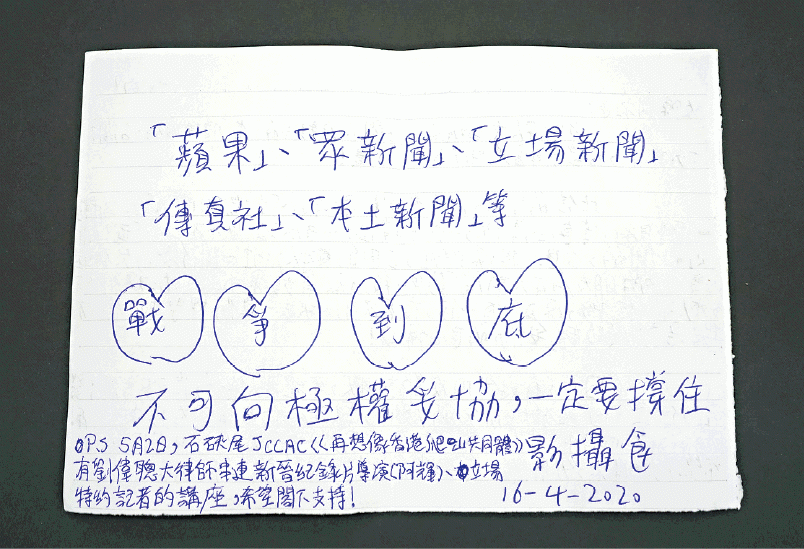 「蘋果」、「眾新聞」、「立場新聞」
「傳真社」、「本土新聞」等
戰 爭 到 底
不可向極權妥協，一定要撐住
P.S 5月2日，石硤尾JCCAC《再想像香港 共同體》 影攝食
有劉偉聰大律師串連新晉紀錄片導演(阿輝)、立場
特約記者的講座，希望閣下支持！ 16-4-2020